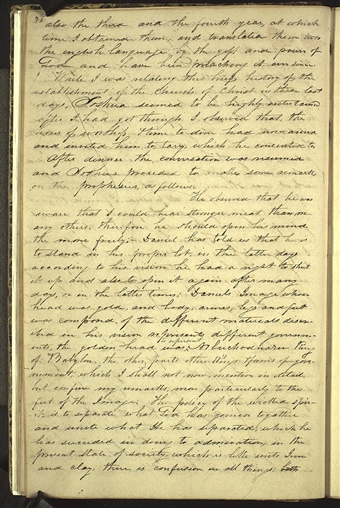 also the third and the fourth year, at which
time I obtained them, and translated them into
the english language, by the gift and power of
God and have been preaching it ever since.
While I was relating this brief history of the
establishment of the Church of Christ in these last
days, Joshua seemed to be highly entertained
after I had got through I observed that, the
hour of worship & time to dine had now arrived
and invited him to tary which he concented to.
After dinner the conversation was resumed
and Joshua proceded to make some remarks
on the prophecies, as follows:
He observed that he was
aware that I could bear stronger meat than many
others, therefore he should open his mind
the more freely;— Daniel has told us that he is
to stand in his proper lot, in the latter days
according to his vision he had a right to shut
it up and also to open it again after many
days, or in the latter times; Daniels Image whose
head was gold, and body, arms, legs and feet
was composed of the different materials described
in his vision represents different governments,
the golden head was to represent Nebuchadnezzar King
of Babylon, the other parts other kings & forms of government,
which I shall not now mention in detail,
but confine my remarks, more particularly to the
feet of the Image: The policy of the wicked spirit,
is to separate what God has joined togather
and unite what He has separated, which he
has succeded in doing to admiration, in the
present state of society, which is like unto Iron
and clay, there is confusion in all things, both